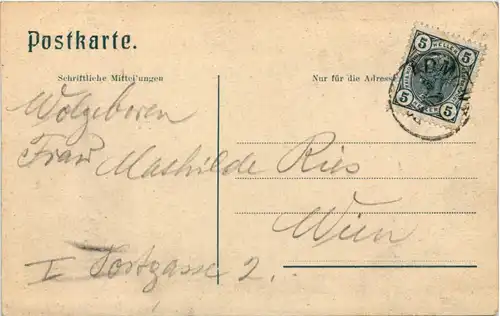 Postkarte.
Schriftliche Mitteilungen
Nur für die Adresse
5 HELLER 5
5 HELLER 5
Wolgeboren
Frau Mathilde Ries
Wien
I Tortgasse 2.